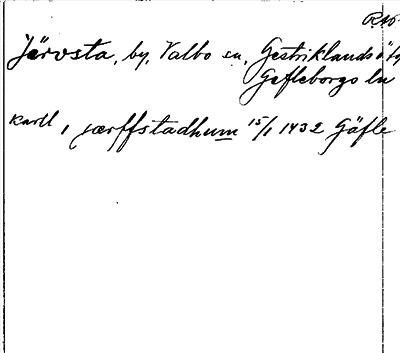 Järvsta, by, Valbo sn, Gestriklands ö
Gefleborgs ln
Karll i jærffstadhum 15/1 1432 Gäfle